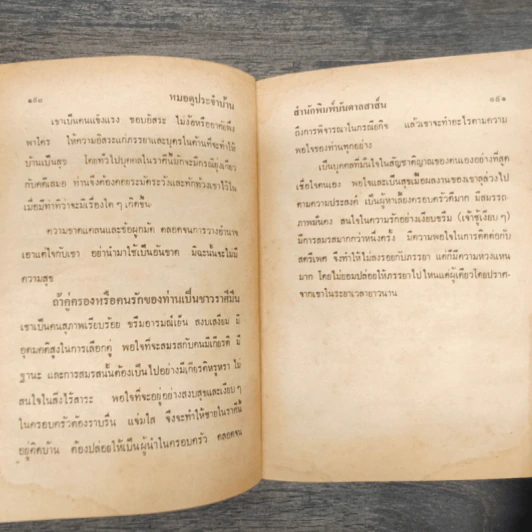 ๑๙๐ หมอดูประจำบ้าน
เขาเป็นคนแข็งแรง ชอบอิสระ ไม่งัอหรือยาคอพึ่ง
พาใคร ให้ความอิสระแก่ภรรยาและบุตรในด้านที่จะทำให้
บ้านเป็นสุข โดยทั่วไปบุคคลในราศีนี้มักจะมีกรณียุ่งเกี่ยว
กับคดีเสมอ ท่านจึงต้องคอยระมัดระวังและทักท้วงเขาไว้ใน
เมื่อมีท่าทีว่าจะมีเรื่องใด ๆ เกิดขึ้น
ความขาดแคลนและข้อผูกมัด ตลอดจนการวางอำนาจ
เอาแต่ใจกับเขา อย่านำมาใช้เป็นอันขาด มิฉะนั้นจะไม่มี
ความสุข
ถ้าคู่ครองหรือคนรักของท่านเป็นชาวราศีมีน
เขาเป็นคนสุภาพเรียบร้อย ขรึมอารมณ์เย็น สงบเสงี่ยม มี
อุดมคติสูงในการเลือกคู่ พอใจที่จะสมรสกับคนมีเกียรติ มี
ฐานะ และการสมรสนั้นต้องเป็นไปอย่างมีเกียรติหรูหรา ไม่
สนใจในสิ่งไร้สาระ พอใจที่จะอยู่อย่างสงบสุขและเงียบ ๆ
ในครอบครัวต้องราบรื่น แจ่มใส จึงจะทำให้ชายในราศีนี้
อยู่ติดบ้าน ต้องปล่อยให้เป็นผู้นำในครอบครัว ตลอดจน
สำนักพิมพ์บันดาลสาส์น ๑๙๑
ถึงการพิจารณาในกรณียกิจ แล้วเขาจะทำอะไรตามความ
พอใจของท่านทุกอย่าง
เป็นบุคคลที่มั่นใจในสัญชาตญาณของตนเองอย่างที่สุด
เชื่อใจตนเอง พอใจและเป็นสุขเมื่อผลงานของเขาลุล่วงไป
ตามความประสงค์ เป็นผู้หาเลี้ยงครอบครัวดีมาก มีสมรรถ-
ภาพมั่นคง สนใจในความรักอย่างเงียบขรึม (เจ้าชู้เงียบๆ)
มีการสมรสมากกว่าหนึ่งครั้ง มีความพอใจในการติดต่อกับ
สตรีเพศ จึงทำให้ไม่ลงรอยกับภรรยา แต่ก็มีความหวงแหน
มาก โดยไม่ยอมปล่อยให้ภรรยาไปไหนแต่ผู้เดียวโดยปราศ-
จากเขาในระยะเวลายาวนาน